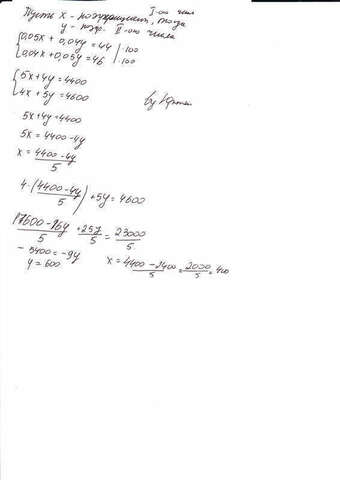 I-ого числ
Пусть x - коэффициент, тогда
y - коэф. II-ого числа
0,05x + 0,04y = 44 | ·100
0,04x + 0,05y = 46 | ·100
5x + 4y = 4400
4x + 5y = 4600
by
5x + 4y = 4400
5x = 4400 - 4y
x = (4400 - 4y)/5
4·((4400 - 4y)/5) + 5y = 4600
(17600 - 16y)/5 + 25y/5 = 23000/5
- 5400 = -9y
y = 600
x = (4400 - 2400)/5 = 2000/5 = 400